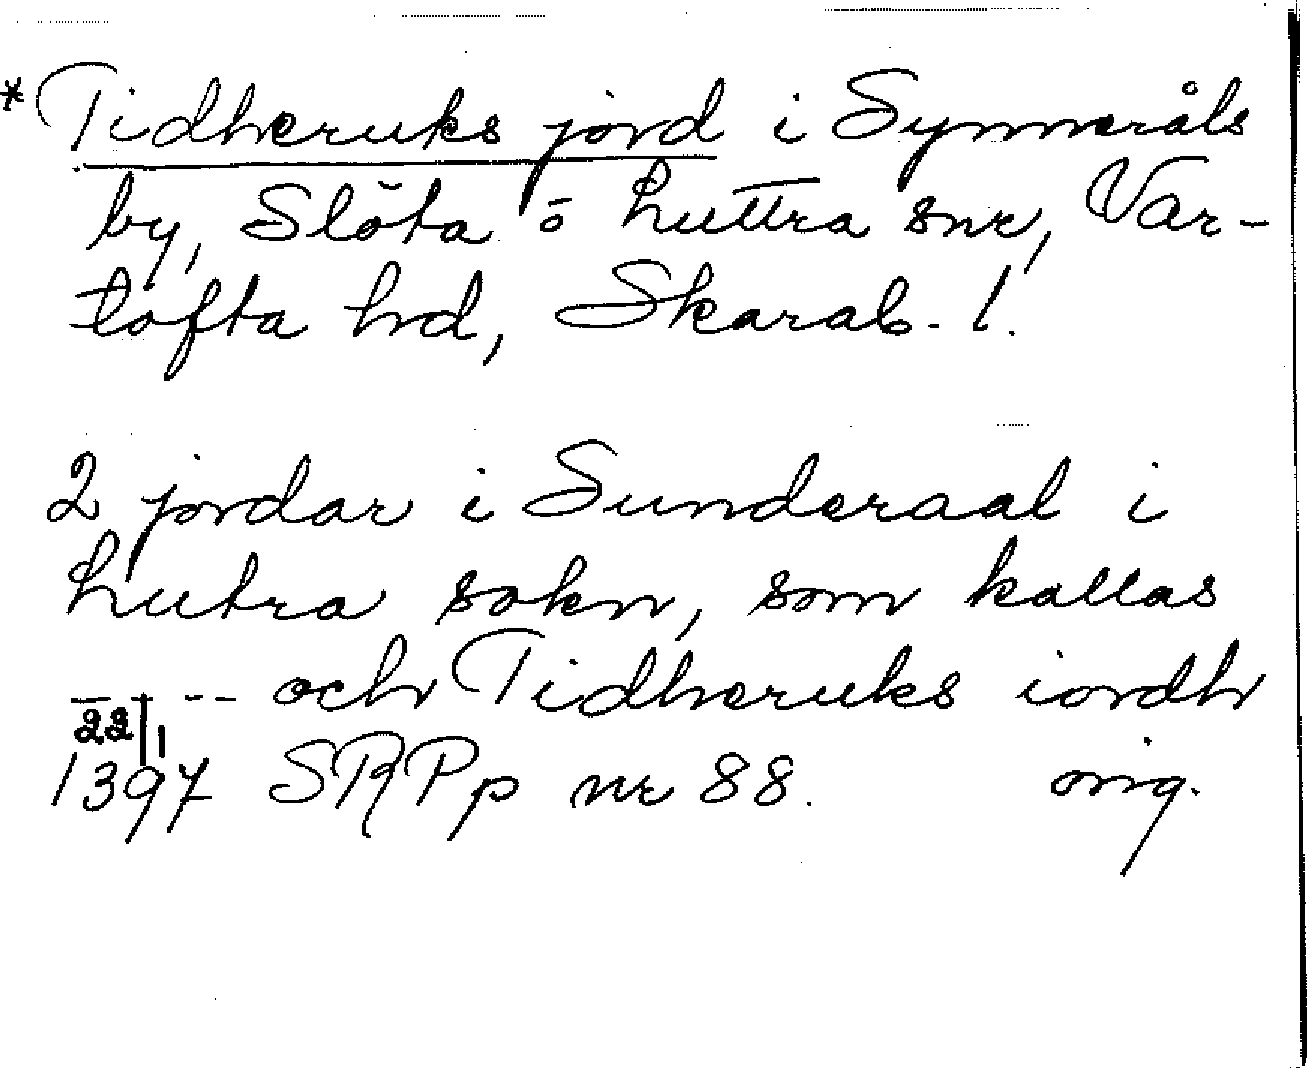 *Tidheruks jord i Synneråls
by, Slöta o huttra snr, Var-
tofta hd, Skarab. l.
2 jordar i Sunderaal i
hutra sokn, som kallas
--- och Tidheruks iordh
22/1
1397 SRPp nr 88. orig.